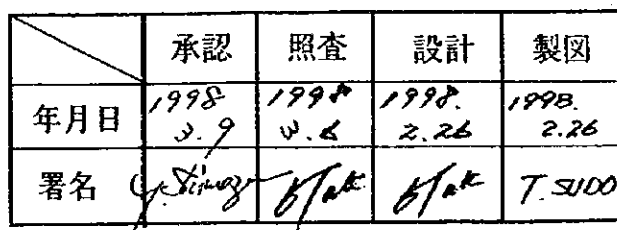 承認 照査 設計 製図
年月日 1998 3.9 1998 3.6 1998. 2.26 1998. 2.26
署名 T.SUDO